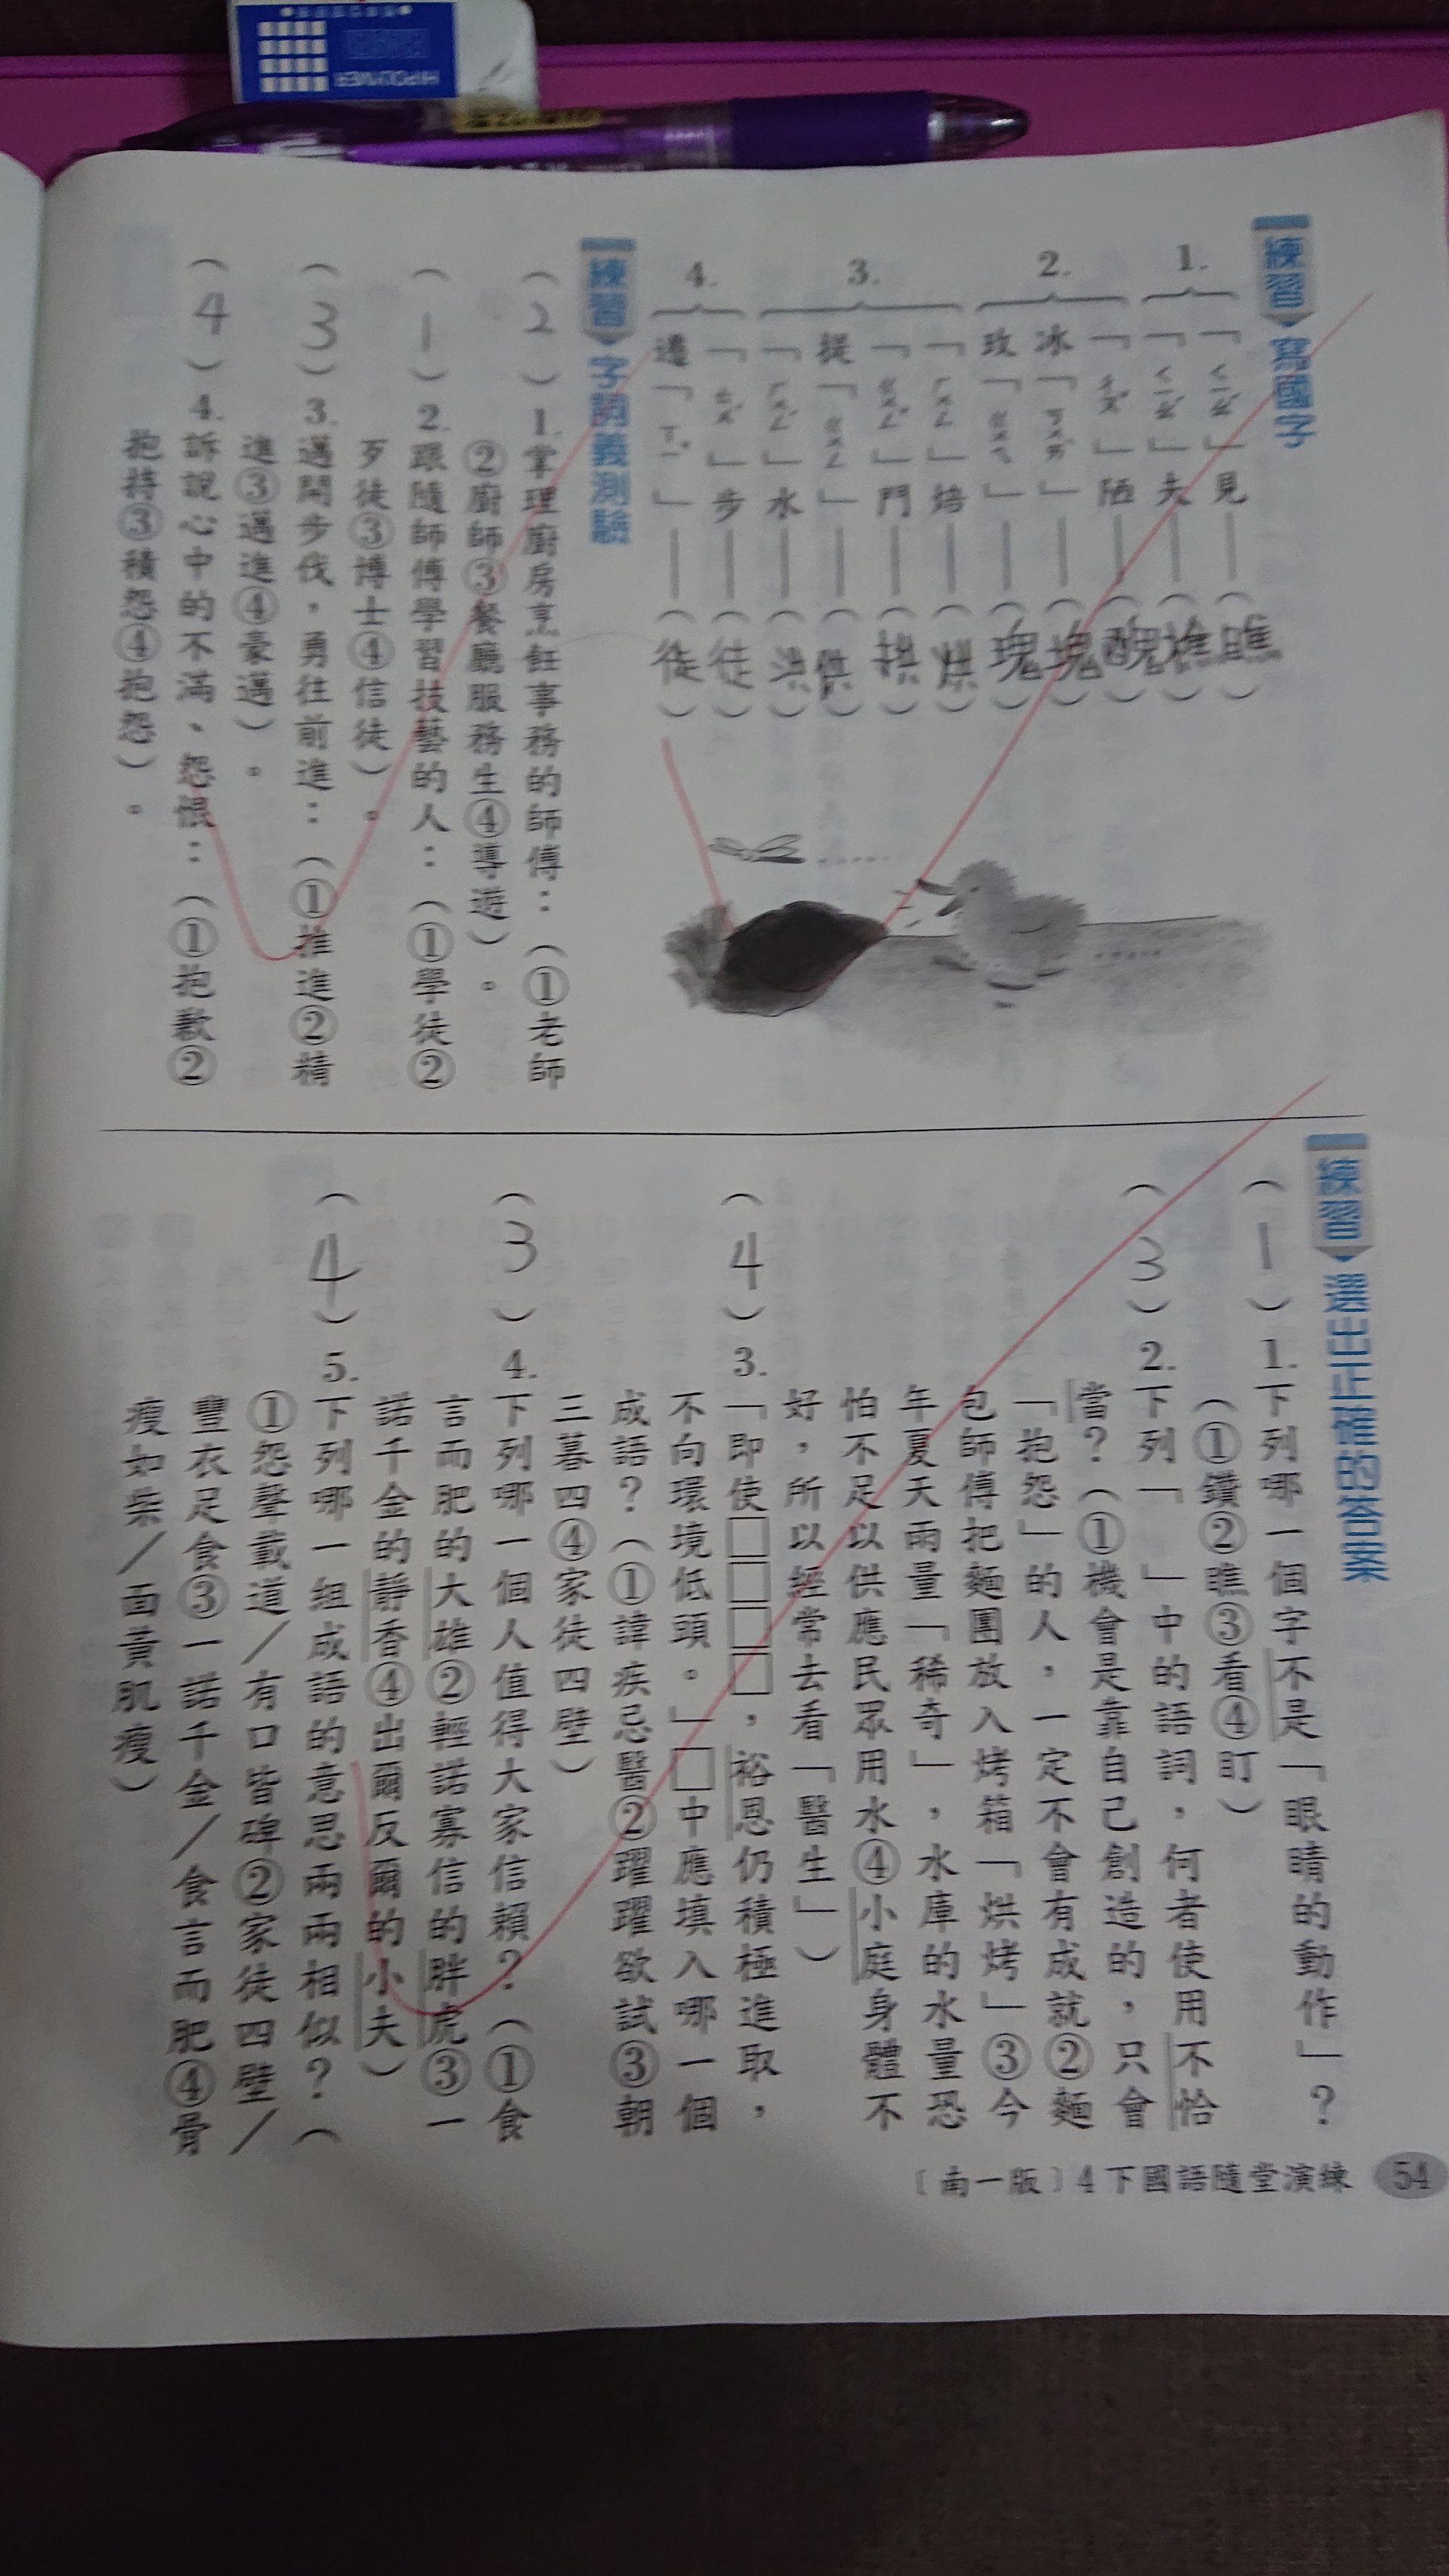 練習 寫國字
1. 「ㄑㄧㄠˊ」見——（瞧）
「ㄑㄧㄠˊ」夫——（樵）
2. 「ㄔㄡˇ」陋——（醜）
冰「ㄎㄨㄞˋ」——（塊）
玫「ㄍㄨㄟ」——（瑰）
3. 「ㄏㄨㄥ」焙——（烘）
「ㄍㄨㄥˇ」門——（拱）
提「ㄍㄨㄥ」——（供）
「ㄏㄨㄥˊ」水——（洪）
4. 「ㄊㄨˊ」步——（徒）
遷「ㄒㄧˇ」——（徙）
練習 字詞義測驗
（2）1.掌理廚房烹飪事務的師傅：（①老師
②廚師③餐廳服務生④導遊）。
（1）2.跟隨師傅學習技藝的人：（①學徒②
歹徒③博士④信徒）。
（3）3.邁開步伐，勇往前進：（①推進②精
進③邁進④豪邁）。
（4）4.訴說心中的不滿、怨恨：（①抱歉②
抱持③積怨④抱怨）。
練習 選出正確的答案
（1）1.下列哪一個字不是「眼睛的動作」？
（①鑽②瞧③看④盯）
（3）2.下列「 」中的語詞，何者使用不恰
當？（①機會是靠自己創造的，只會
「抱怨」的人，一定不會有成就②麵
包師傅把麵團放入烤箱「烘烤」③今
年夏天雨量「稀奇」，水庫的水量恐
怕不足以供應民眾用水④小庭身體不
好，所以經常去看「醫生」）
（4）3.「即使□□□□，裕恩仍積極進取，
不向環境低頭。」□中應填入哪一個
成語？（①諱疾忌醫②躍躍欲試③朝
三暮四④家徒四壁）
（3）4.下列哪一個人值得大家信賴？（①食
言而肥的大雄②輕諾寡信的胖虎③一
諾千金的靜香④出爾反爾的小夫）
（4）5.下列哪一組成語的意思兩兩相似？（
①怨聲載道／有口皆碑②家徒四壁／
豐衣足食③一諾千金／食言而肥④骨
瘦如柴／面黃肌瘦）
〔南一版〕4下國語隨堂演練 54
HI-POLYMER